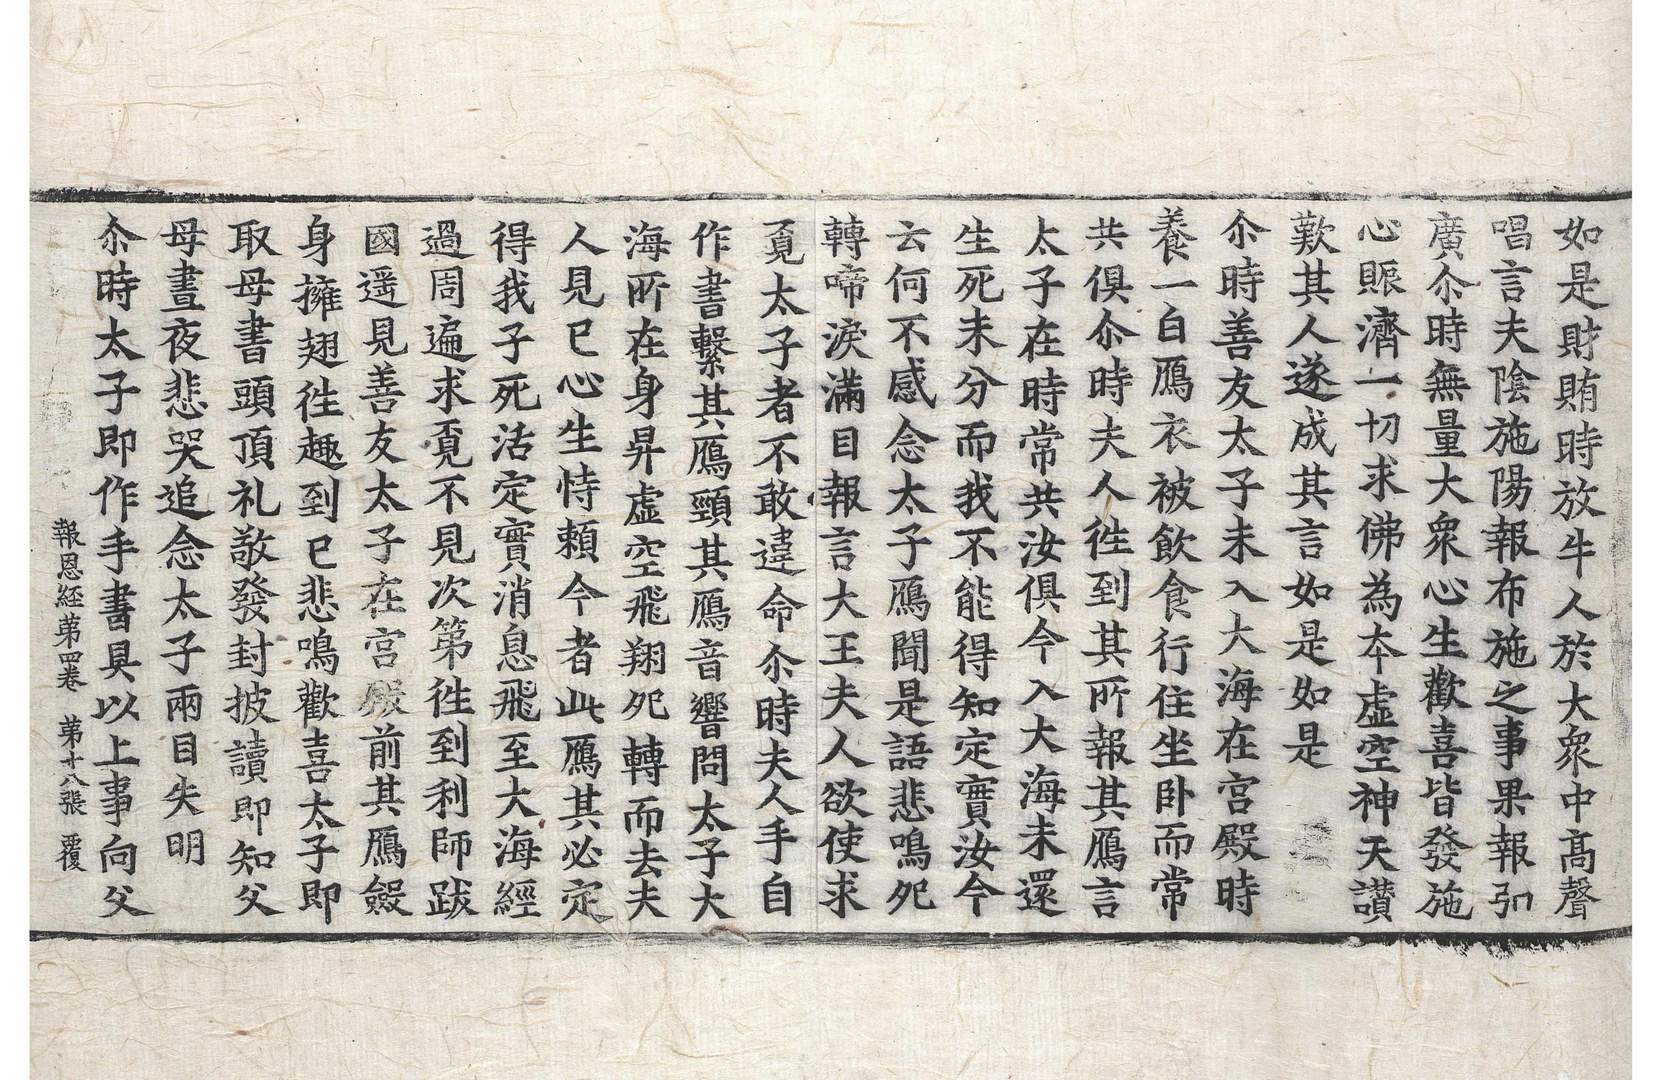 如是財賄時放牛人於大衆中高聲
唱言夫陰施陽報布施之事果報弘
廣尒時無量大衆心生歡喜皆發施
心賑濟一切求佛為本虛空神天讃
歎其人遂成其言如是如是
尒時善友太子未入大海在宮殿時
養一白鴈衣被飲食行住坐卧而常
共俱尒時夫人徃到其所報其鴈言
太子在時常共汝俱今入大海未還
生死未分而我不能得知定實汝今
云何不感念太子鴈聞是語悲鳴宛
轉啼淚滿目報言大王夫人欲使求
覔太子者不敢違命尒時夫人手自
作書繫其鴈頸其鴈音響問太子大
海所在身昇虛空飛翔宛轉而去夫
人見已心生恃賴今者此鴈其必定
得我子死活定實消息飛至大海經
過周遍求覔不見次第徃到利師跋
國遥見善友太子在宮殿前其鴈斂
身擁翅徃趣到已悲鳴歡喜太子即
取母書頭頂礼敬發封披讀即知父
母晝夜悲哭追念太子兩目失明
尒時太子即作手書具以上事向父
報恩經第四卷 第十八張 覆